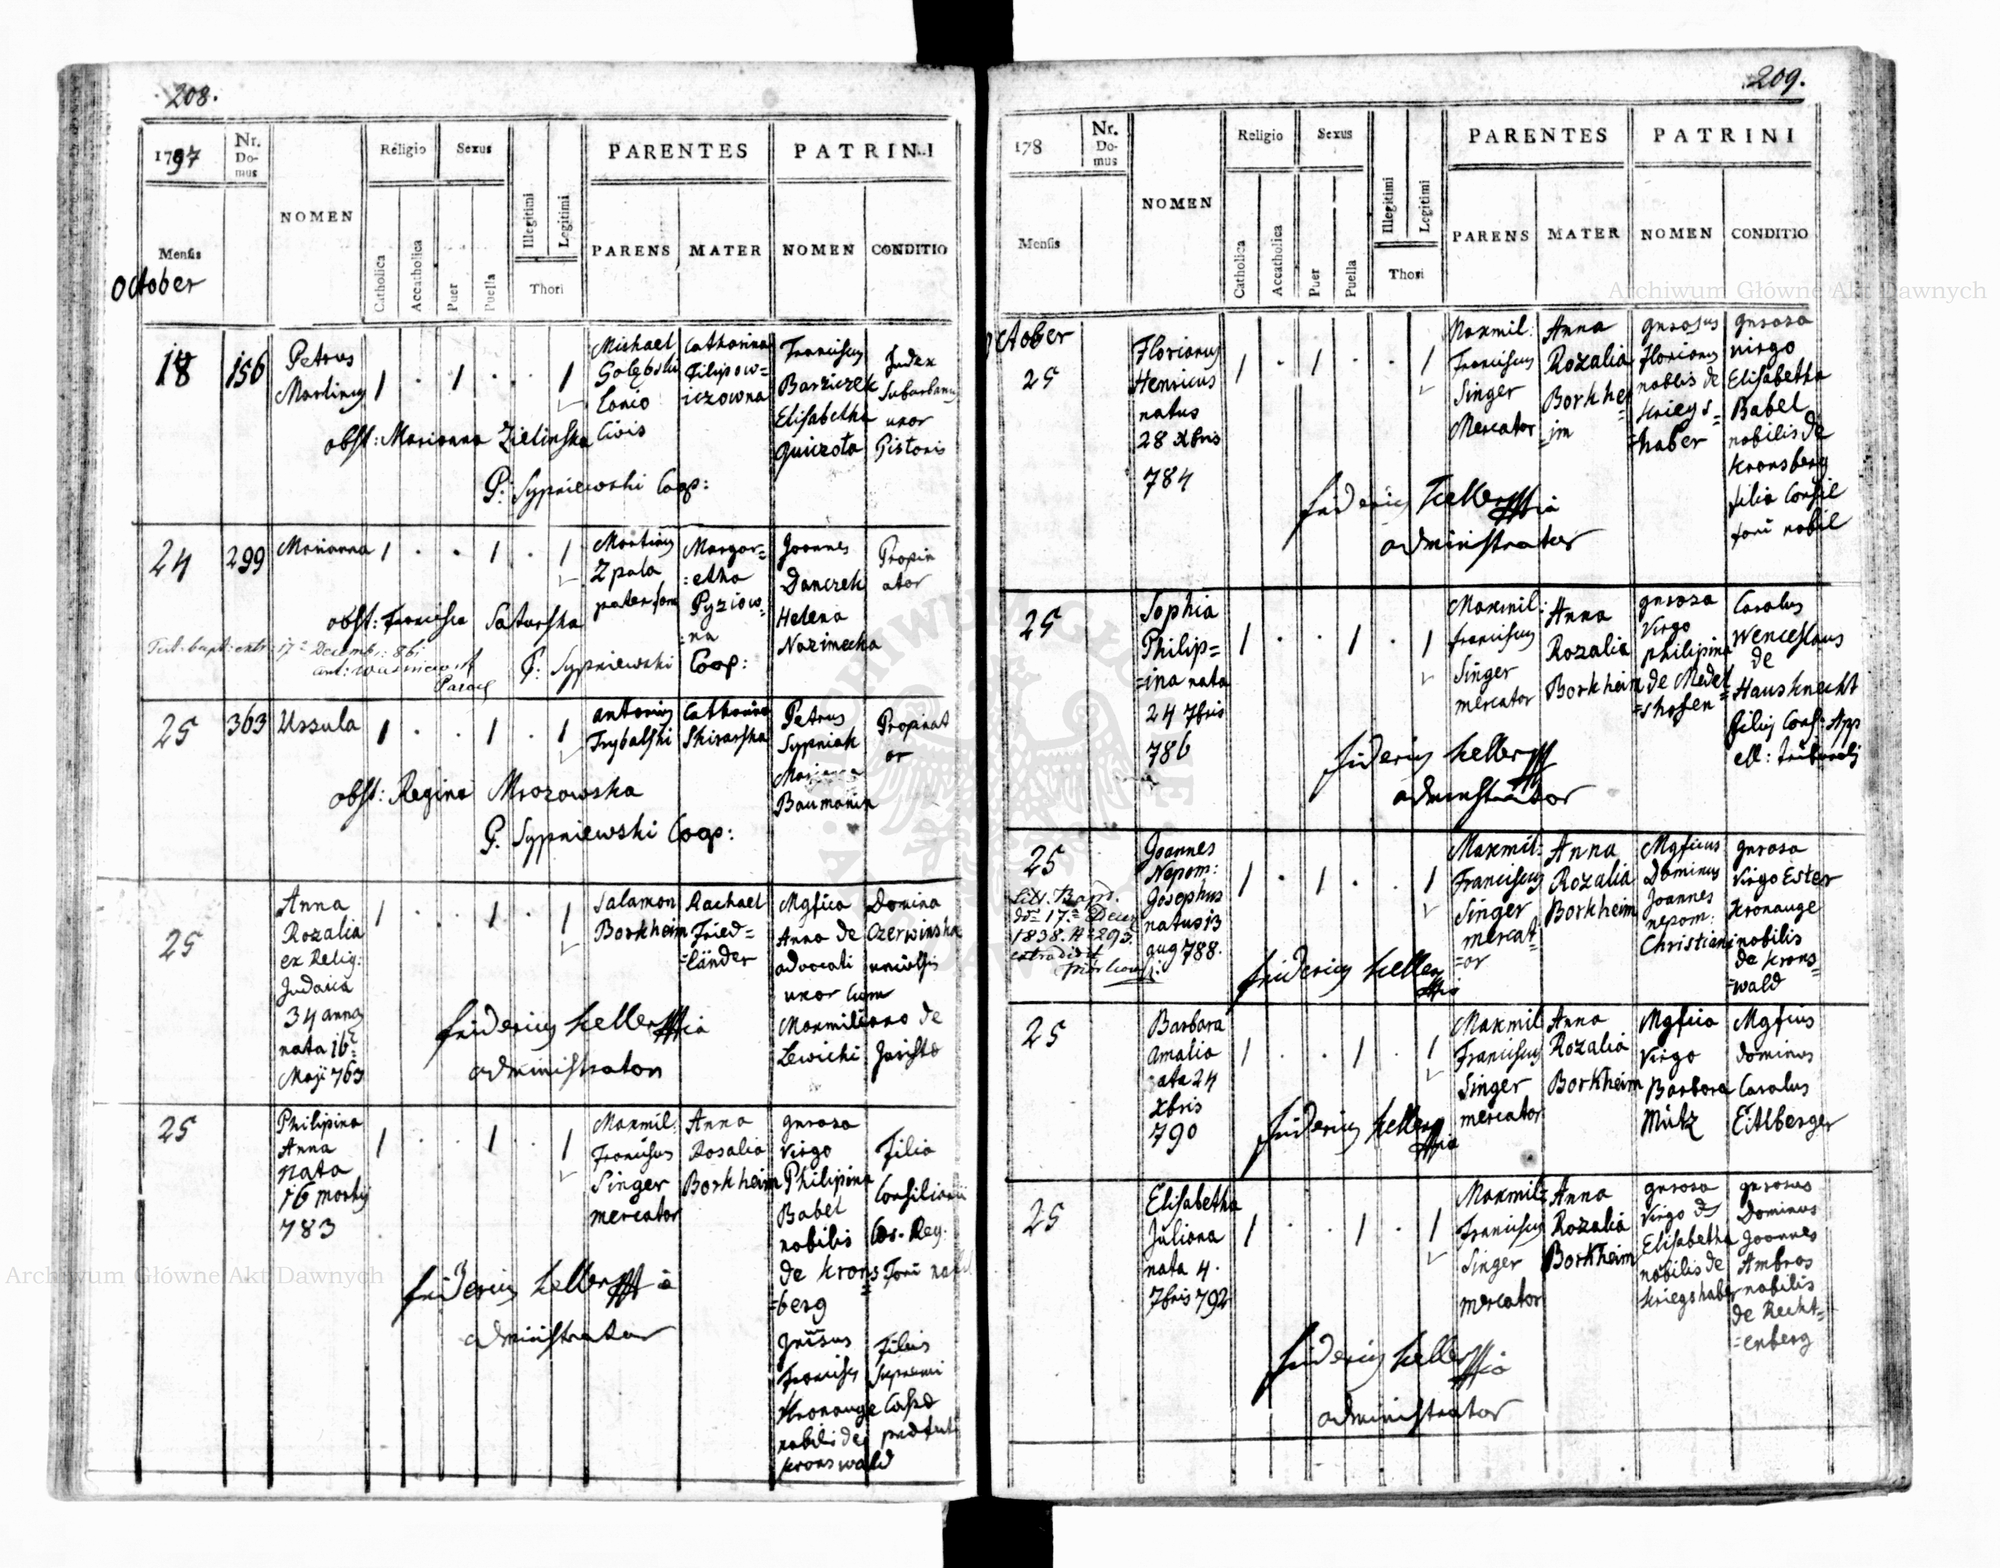 208.
1797
Nr. Domus
NOMEN
Religio
Sexus
PARENTES
PATRINI
Mensis
October
Catholica
Accatholica
Puer
Puella
Illegitimi
Legitimi
Thori
PARENS
MATER
NOMEN
CONDITIO
18
156
Petrus
Martinus
1 . 1 . . 1
Michael
Lanio
Civis
Catharina
Filipow=
iczowna
Franciscus
Barziczek
Elisabetha
Guiczota
Judex
Suburbanus
uxor
Pistoris
obst: Marianna Zielinska
P: Sypniewski Coop:
24
299
Marianna
1 . . 1 . 1
Martinus
Zpala
Margar=
=etha
Pyziow=
=na
Joannes
Danczek
Helena
Nazimecka
Propin
ator
obst: Francisca Saturska
17 Decemb: 86
P: Sypniewski Coop:
25
363
Ursula
1 . . 1 . 1
Antonius
Trybalski
Catharina
Skirarska
Petrus
Sypniak
Marianna
Baumanin
Propinat
or
obst: Regina Mrozowska
P. Sypniewski Coop:
25
Anna
Rozalia
ex Relig:
Judaica
34 anno
nata 16
Maji 763
1 . . 1 . 1
Salamon
Borkheim
Rachael
Fried=
=länder
Mgfica
Anna de
advocati
uxor cum
Maxmiliano de
Lewicki
Domina
Czerwinska
Jurista
Fridericus Keller
administrator
25
Philipina
Anna
nata
16 Martij
783
1 . . 1 . 1
Maxmil.
Franciscus
Singer
mercator
Anna
Rosalia
Borkheim
Gnrosa
Virgo
Philipina
Babel
nobilis
de Krons
=berg
Franciscus
Kronauge
nobilis de
Kronswald
Filia
Consiliarii
Cos. Reg:
Fori nobil
Filius
Supremi
Fridericus Keller
administrator
209.
178
Nr. Domus
NOMEN
Religio
Sexus
PARENTES
PATRINI
Mensis
Catholica
Accatholica
Puer
Puella
Illegitimi
Legitimi
Thori
PARENS
MATER
NOMEN
CONDITIO
October
25
Florianus
Henricus
natus
28 Xbris
784
1 . 1 . . 1
Maxmil:
Franciscus
Singer
Mercator
Anna
Rozalia
Borkhe
=im
Gnrosus
Florianus
nobilis de
Kriegs=
=haber
Gnrosa
Virgo
Elisabetha
Babel
nobilis de
Kronsberg
filia Consil
fori nobil
Fridericus Keller
administrator
25
Sophia
Philip=
=ina nata
24 7bris
786
1 . . 1 . 1
Maxmil:
Franciscus
Singer
mercator
Anna
Rozalia
Borkheim
Gnrosa
Virgo
Philipina
de Medel
=shofen
Carolus
Wenceslaus
de
Hausknecht
filius Cons: App
ell: Tribunalis
Fridericus Keller
administrator
25
Litt. Bapt.
17 Decem
1838. N 293.
extradidit
Joannes
Nepom:
Josephus
natus 13
aug 788.
1 . 1 . . 1
Maxmil:
Franciscus
Singer
mercat=
=or
Anna
Rozalia
Borkheim
Mgficus
Dominus
Joannes
nepom:
Christiani
Gnrosa
Virgo Ester
Kronauge
nobilis
de Krons=
=wald
Fridericus Keller
25
Barbara
Amalia
nata 24
Xbris
790
1 . . 1 . 1
Maxmil
Franciscus
Singer
mercator
Anna
Rozalia
Borkheim
Mgfica
Virgo
Barbara
Mütz
Mgficus
Dominus
Carolus
Eitlberger
Fridericus Keller
25
Elisabetha
Juliana
nata 4.
7bris 792
1 . . 1 . 1
Maxmil:
Franciscus
Singer
mercator
Anna
Rozalia
Borkheim
Gnrosa
Virgo
Elisabetha
nobilis de
Kriegshaber
Gnrosus
Dominus
Joannes
Ambros
nobilis
de Recht=
=enberg
Fridericus Keller
administrator
Archiwum Główne Akt Dawnych
Archiwum Główne Akt Dawnych